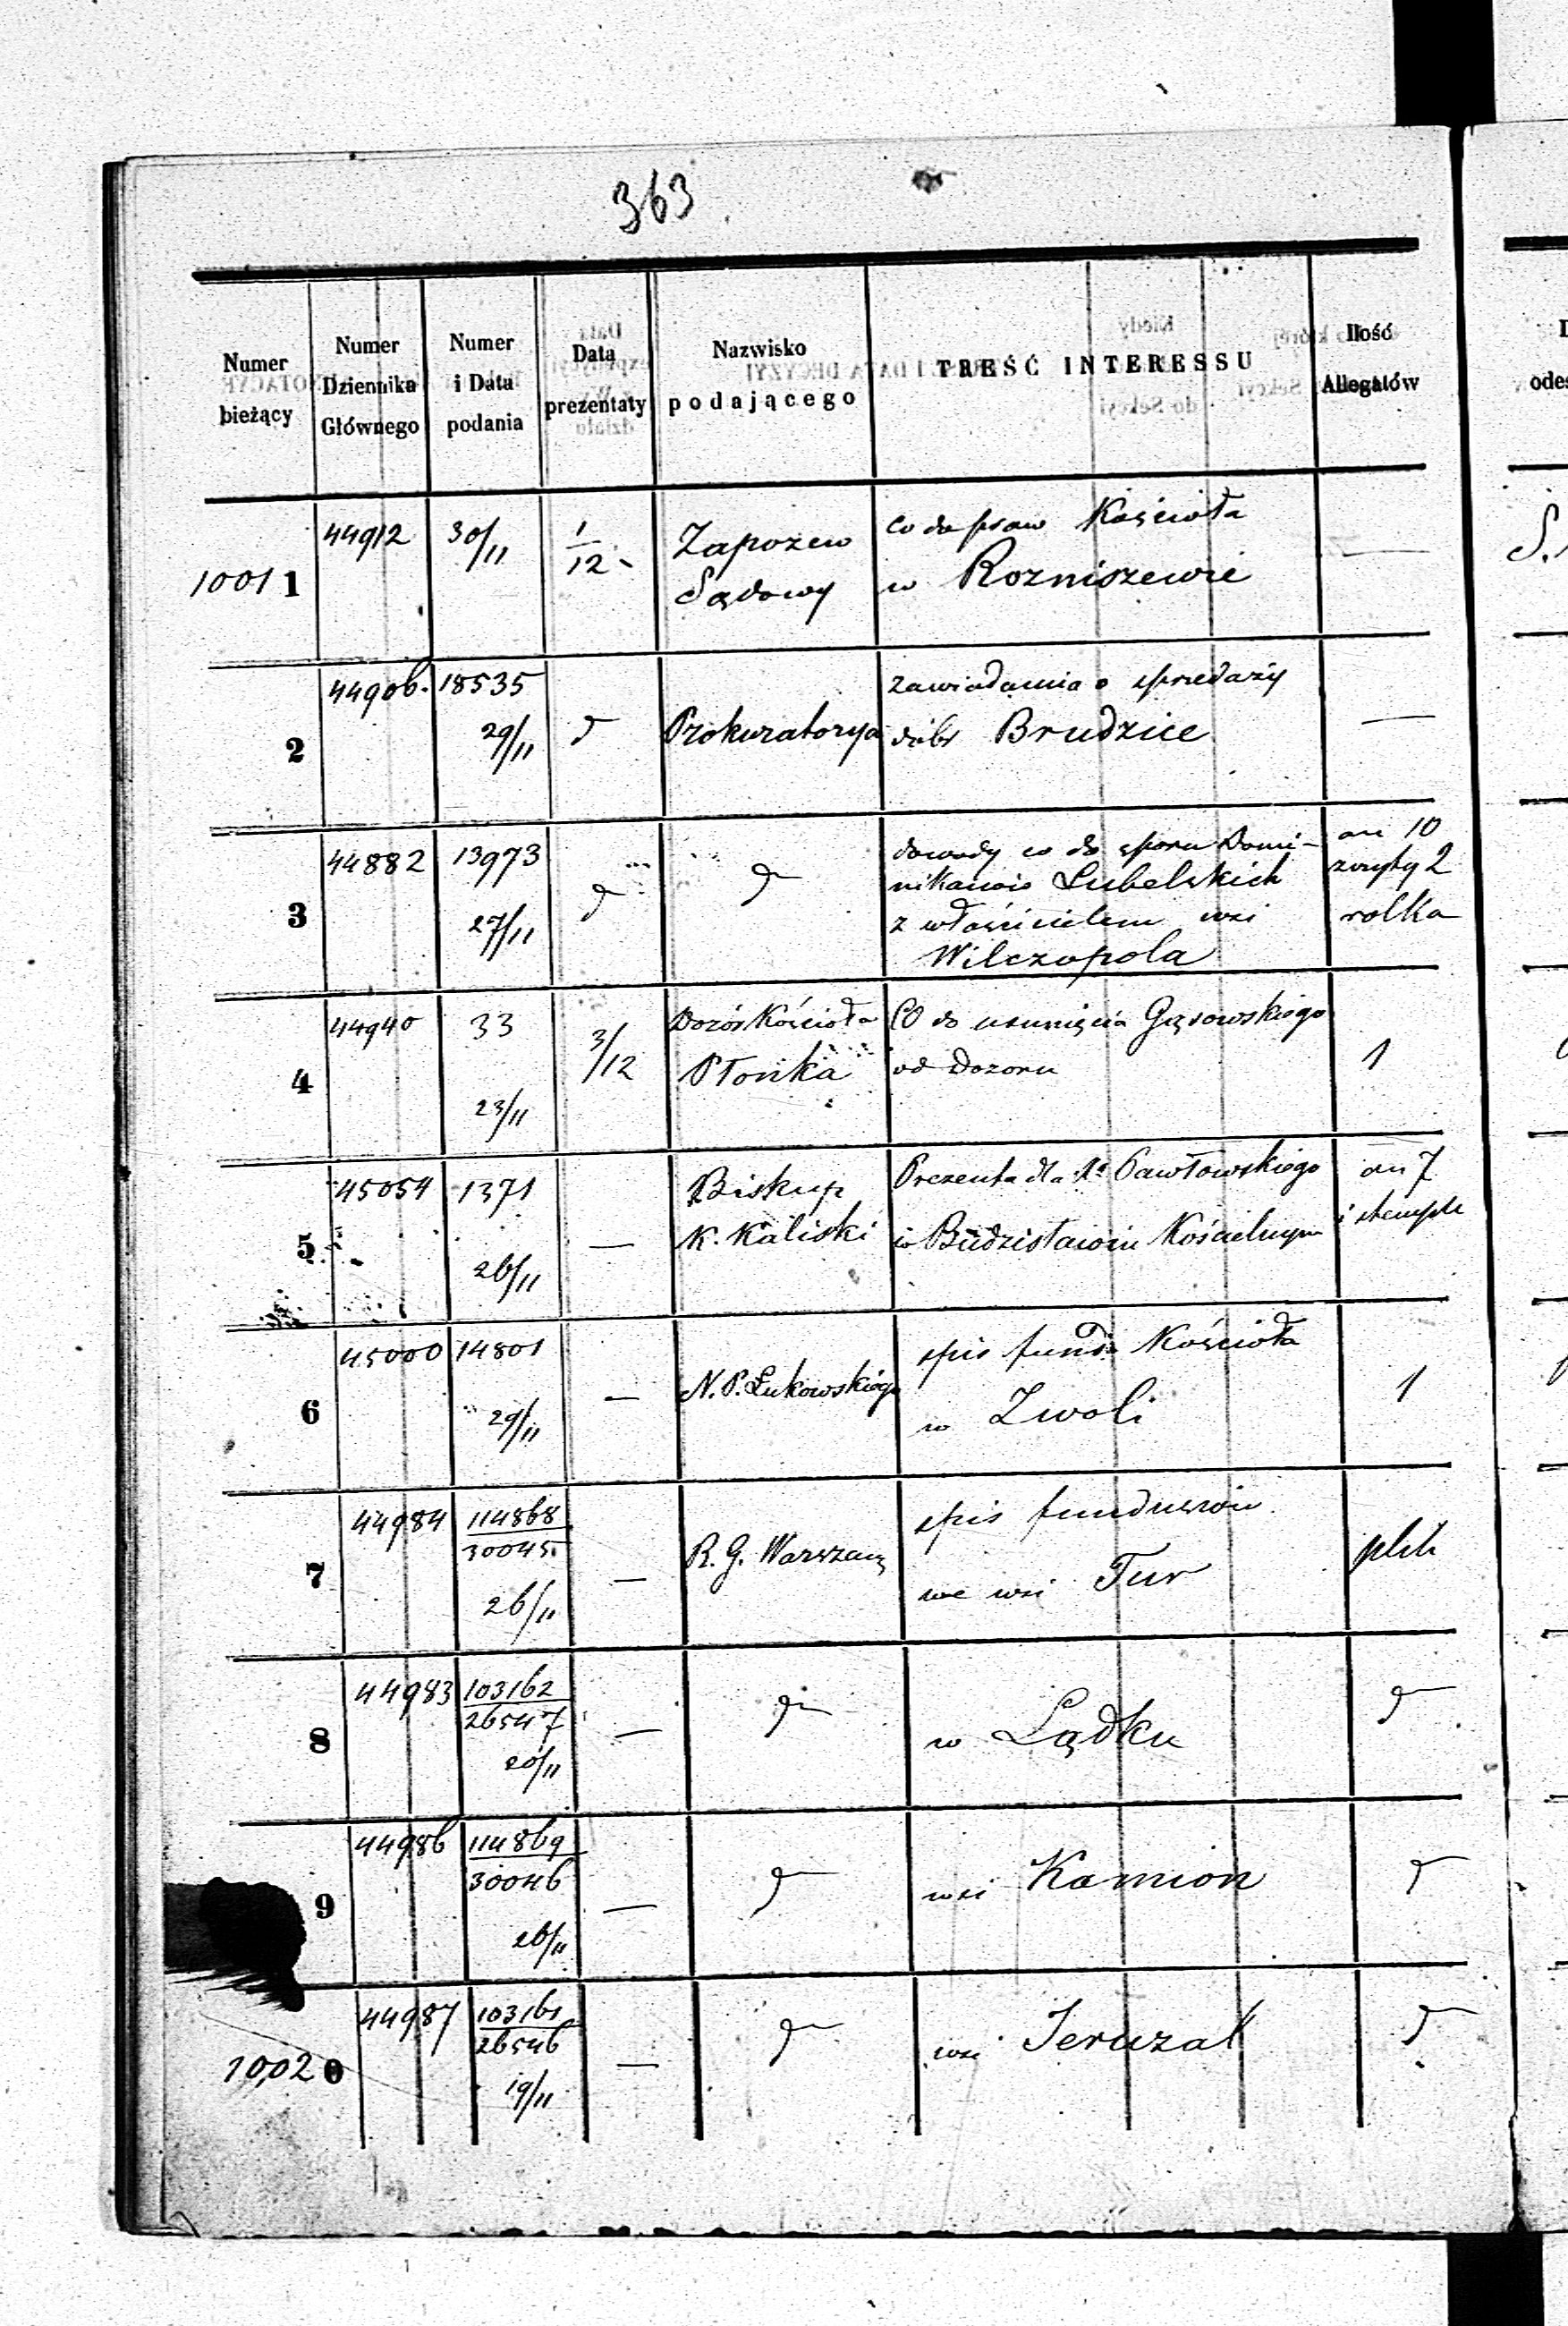 363
Numer
bieżący
Numer
Dziennika
Głównego
Numer
i Data
podania
Data
prezentaty
Nazwisko
podającego
TREŚĆ INTERESSU
Ilość
Allegatów
1001 1
44912
30/11
1/12
Zapozew
Sądowy
co do praw Kościoła
w Rozniszewie
—
2
44906.
18535
29/11
d
Prokuratorya
zawiadamia o sprzedaży
dóbr Brudzice
—
3
44882
13973
27/11
d
d
dowody co do sporu Domi-
nikanów Lubelskich
z właścicielem wsi
Wilczopola
an 10
zeszyty 2
rolka
4
44940
33
23/11
3/12
Dozór Kościoła
Płonka
Co do usunięcia Gąsowskiego
od Dozoru
1
5
45054
1371
26/11
—
Biskup
K. Kaliski
Prezenta dla Xa Pawłowskiego
w Budzisławiu Kościelnym
an 7
i stemple
6
45000
14801
29/11
—
N. P. Łukowskiego
spis fund: Kościoła
w Zwoli
1
7
44984
114868
30045.
26/11
—
R. G. Warszaws
spis funduszów
we wsi Tur
plik
8
44983
103162
26547
20/11
—
d
w Lądku
d
9
44986
114869
30046
26/11
—
d
wsi Kamion
d
1002 0
44987
103161
26546
19/11
—
d
wsi Jeruzal
d